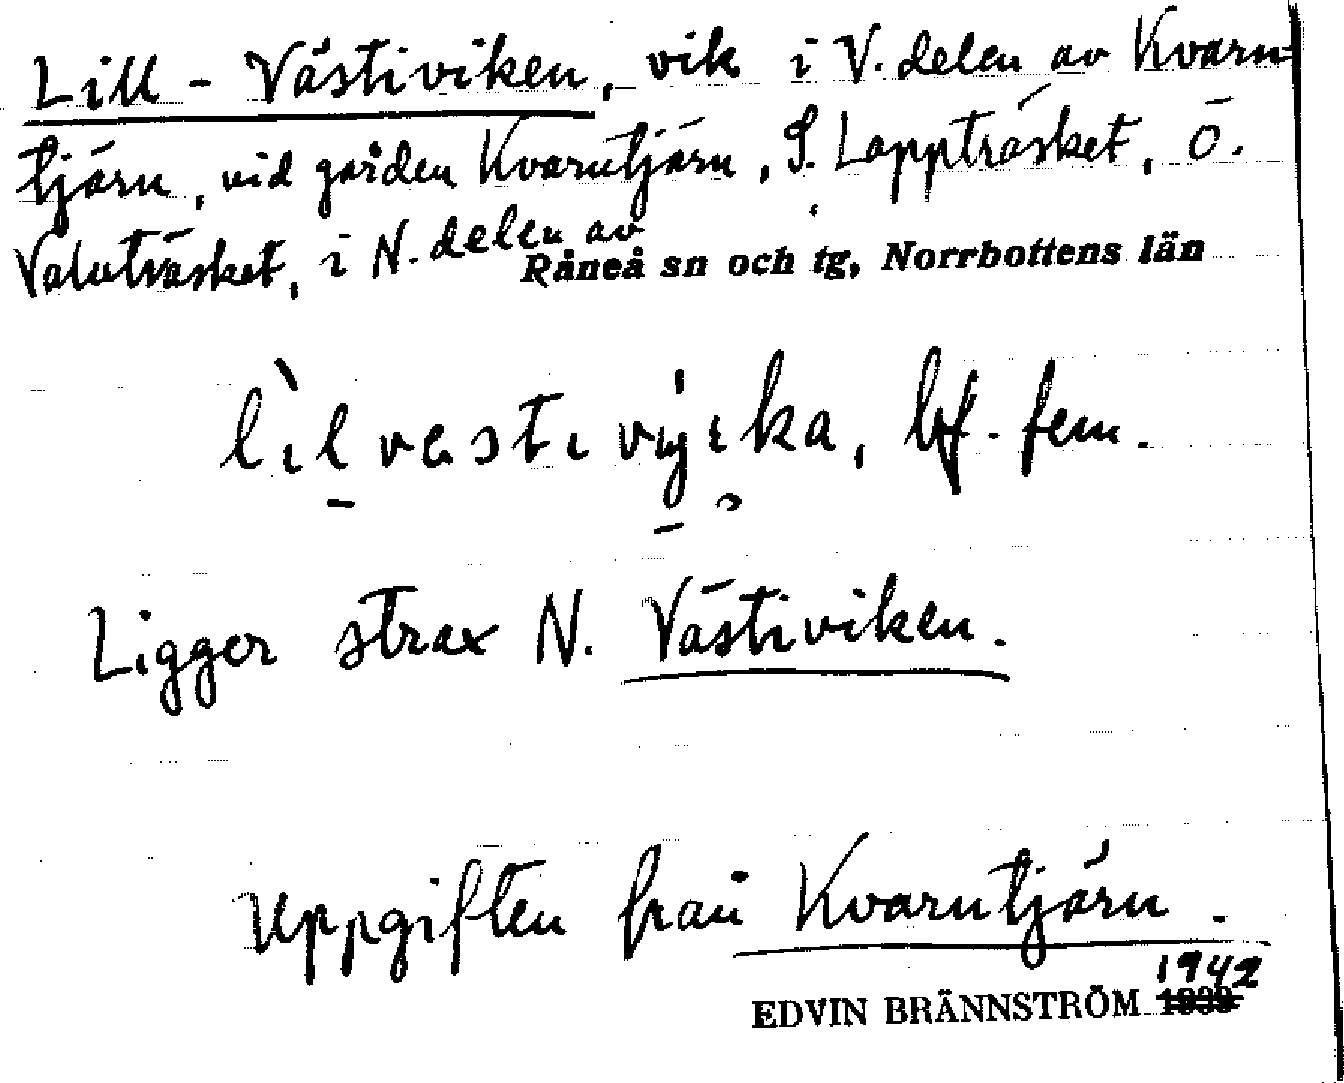 Lill-Västiviken, vik i V. delen av Kvarn-
tjärn, vid gården Kvarntjärn, S. Lappträsket, Ö.
Valvträsket, i N. delen av
Råneå sn och tg, Norrbottens län
bf. fem.
Ligger strax N. Västiviken.
Uppgiften från Kvarntjärn.
1942
EDVIN BRÄNNSTRÖM 1939